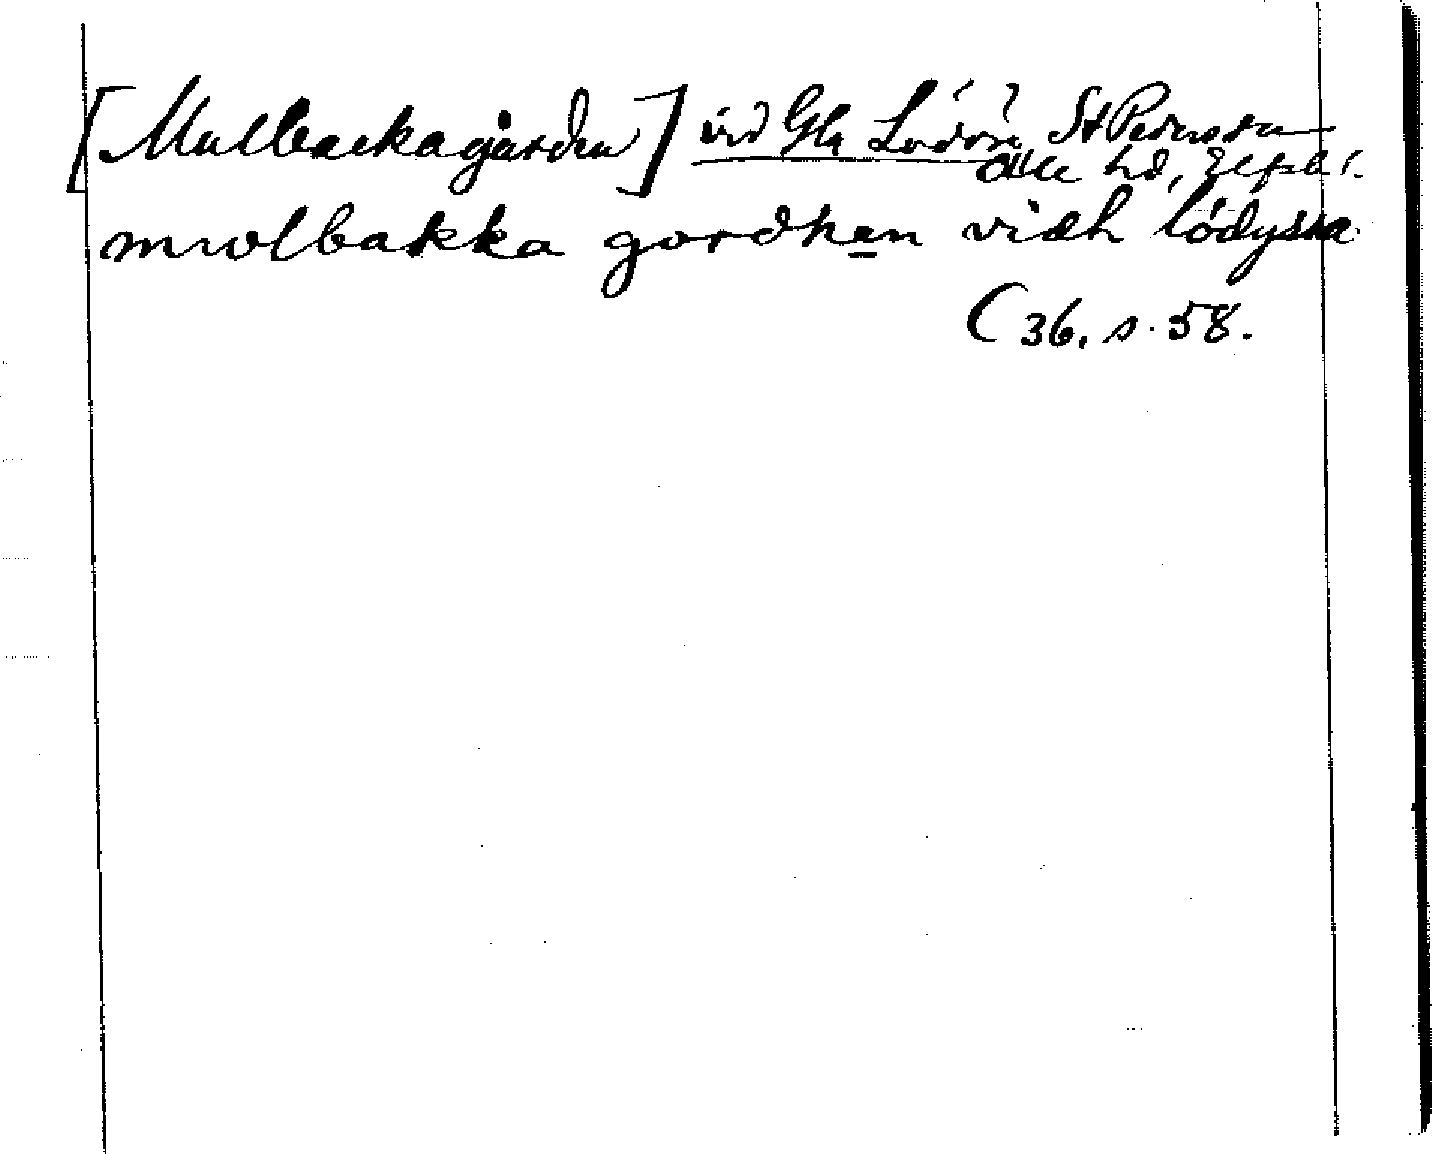 [Mulbackagården] vid Gla Lödöse St Peders sn
Ale hd, Elfsb l.
mwlbakka gordhen vidh lódyssa
C 36, s. 58.